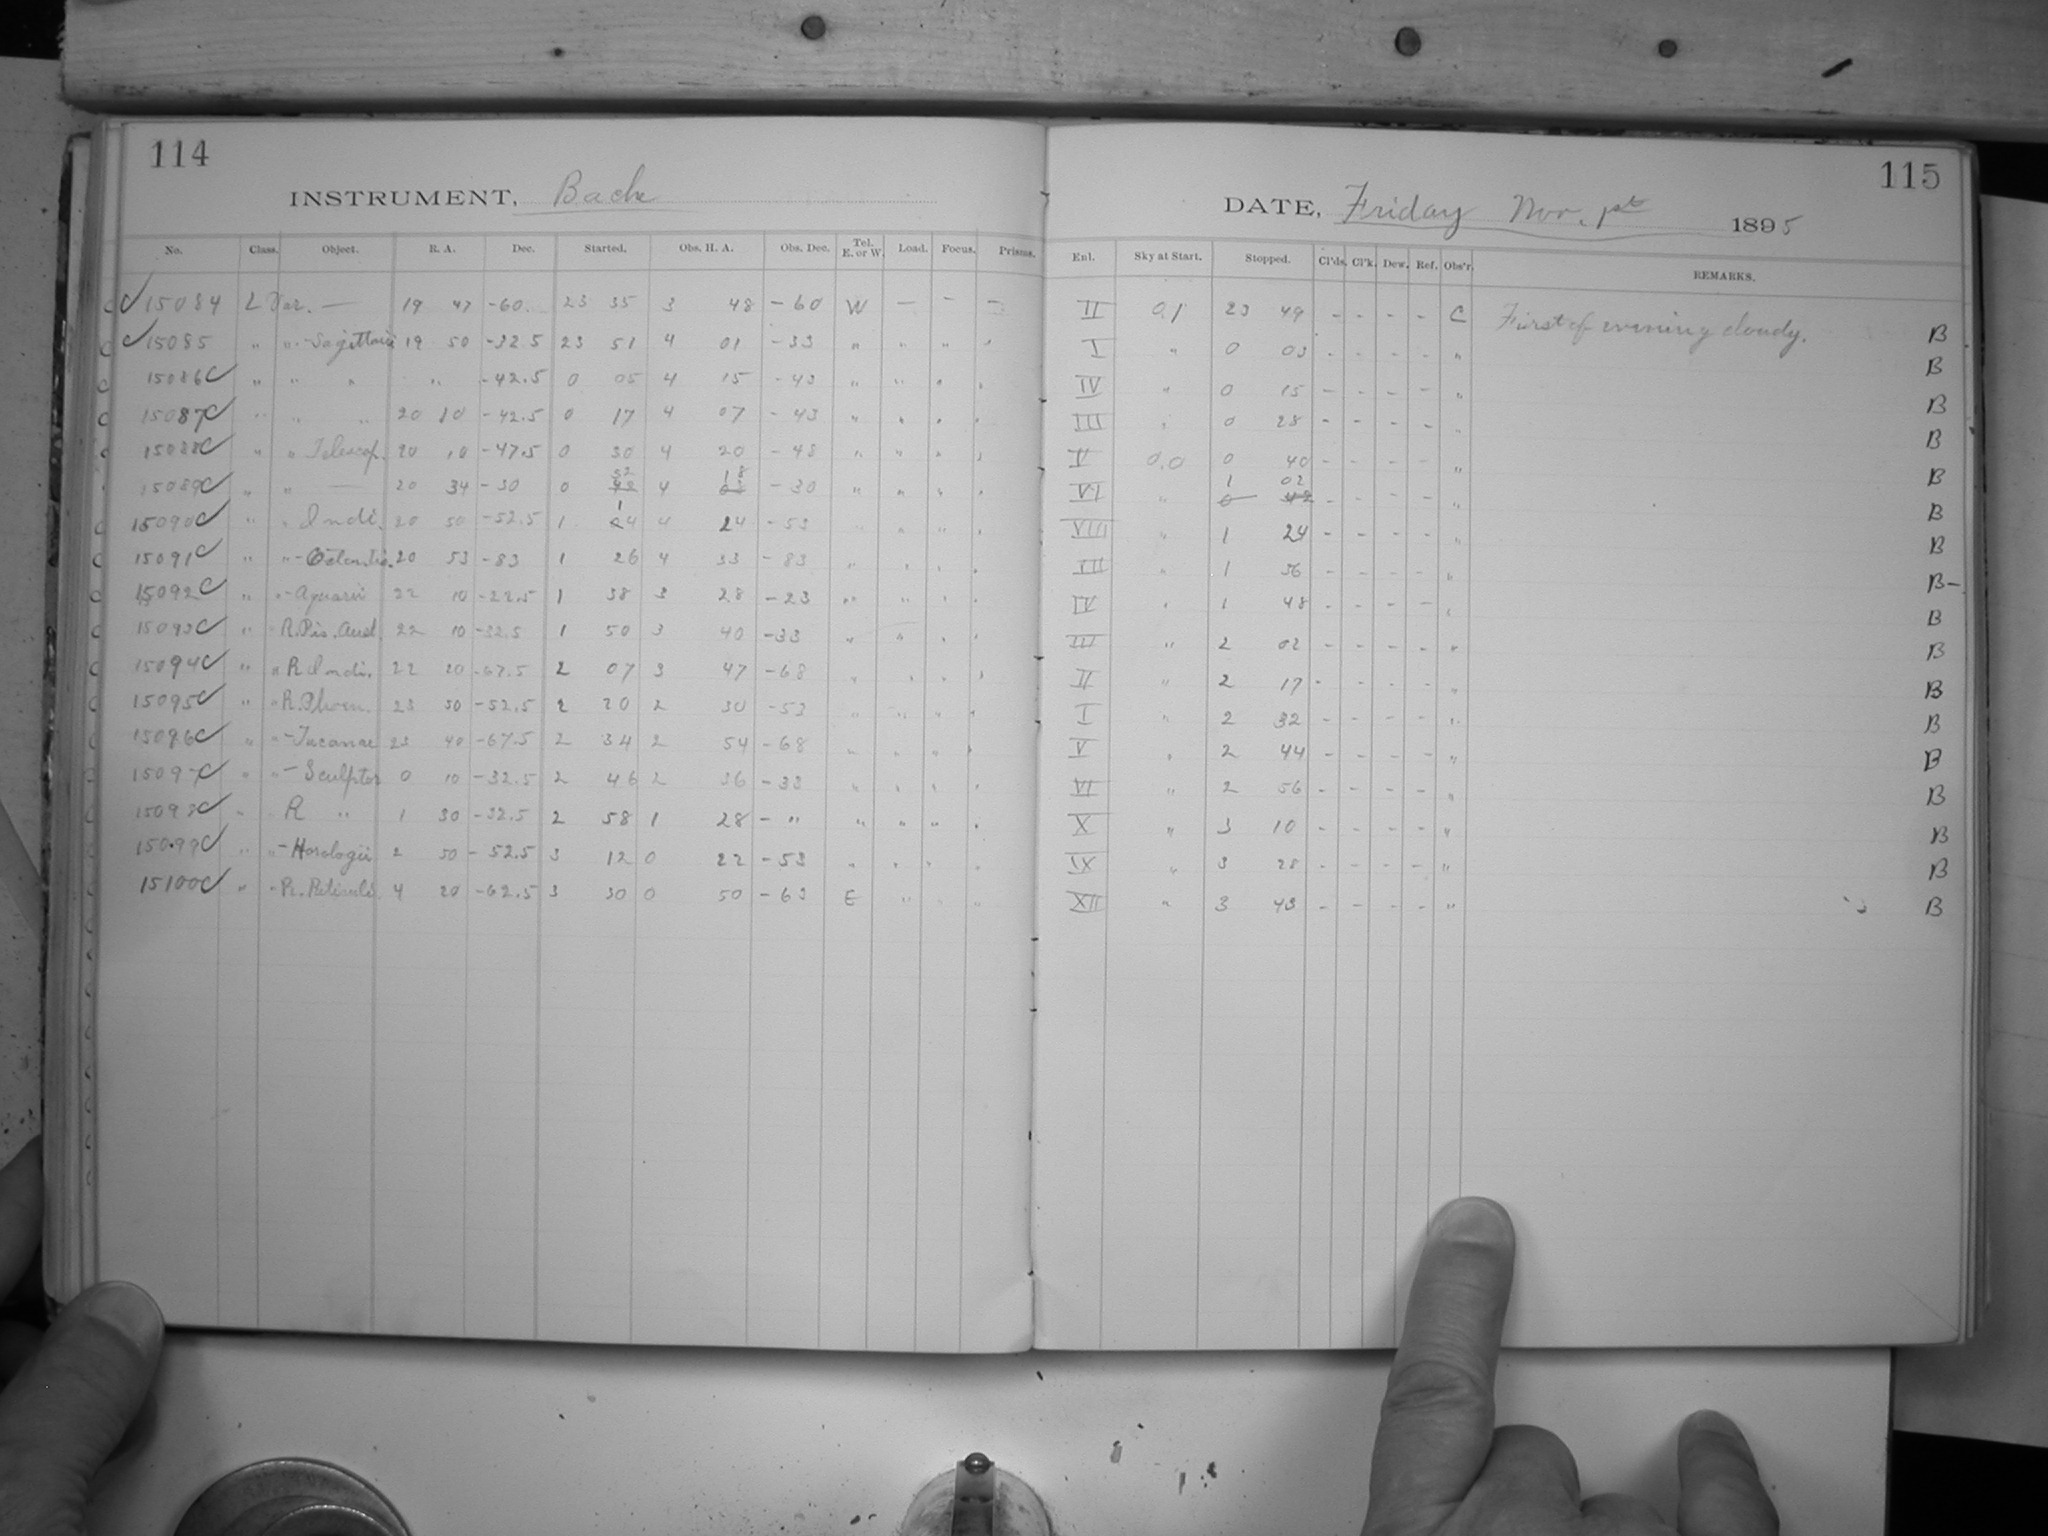 114
INSTRUMENT, Bache
No. Class. Object. R. A. Dec. Started. Obs. H. A. Obs. Dec. Tel. E. or W. Load. Focus. Prisms.
15084 L Var. — 19 47 -60. 23 35 3 48 -60 W — - —
15085 " " - Sagittarii 19 50 -32.5 23 51 4 01 -33 " " " "
15086 C " " " " -42.5 0 05 4 15 -43 " " " "
15087 C " " " 20 10 -42.5 0 17 4 07 -43 " " " "
15088 C " " Telescop. 20 10 -47.5 0 30 4 20 -48 " " " "
15089 C " " — 20 34 -30 0 52 4 18 -30 " " " "
15090 C " " Indi. 20 50 -52.5 1 14 4 24 -53 " " "
15091 C " " - Octantis. 20 53 -83 1 26 4 33 -83 " " " "
15092 C " " - Aquarii 22 10 -22.5 1 38 3 28 -23 " " " "
15093 C " " R. Pis. Aust. 22 10 -32.5 1 50 3 40 -33 " " " "
15094 C " " R Indi. 22 20 -67.5 2 07 3 47 -68 " " " "
15095 C " " R. Phoen. 23 50 -52.5 2 20 2 30 -53 " " " "
15096 C " " - Tucanae 23 40 -67.5 2 34 2 54 -68 " " " "
15097 C " " - Sculptor 0 10 -32.5 2 46 2 36 -33 " " " "
15098 C " " R " 1 30 -32.5 2 58 1 28 - " " " " "
15099 C " " - Horologii 2 50 -52.5 3 12 0 22 -53 " " " "
15100 C " " R. Reticuli. 4 20 -62.5 3 30 0 50 -63 E " " "
115
DATE, Friday Nov. 1st 1895
Enl. Sky at Start. Stopped. Cl'ds. Cl'k. Dew. Ref. Obs'r. REMARKS.
II 0.1 23 49 - - - - C First of evening cloudy. B
I " 0 03 - - - - " B
IV " 0 15 - - - - " B
III " 0 28 - - - - " B
V 0.0 0 40 - - - - " B
VI " 1 02 " B
VIII " 1 24 - - - - " B
VII " 1 36 - - - - " B-
IV " 1 48 - - - - " B
III " 2 02 - - - - " B
II " 2 17 - - - - " B
I " 2 32 - - - - " B
V " 2 44 - - - - " B
VI " 2 56 - - - - " B
X " 3 10 - - - - " B
IX " 3 28 - - - - " B
XII " 3 43 - - - - " B